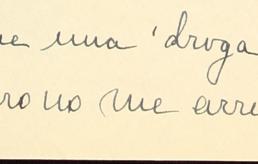 e una 'droga
ro no me arre